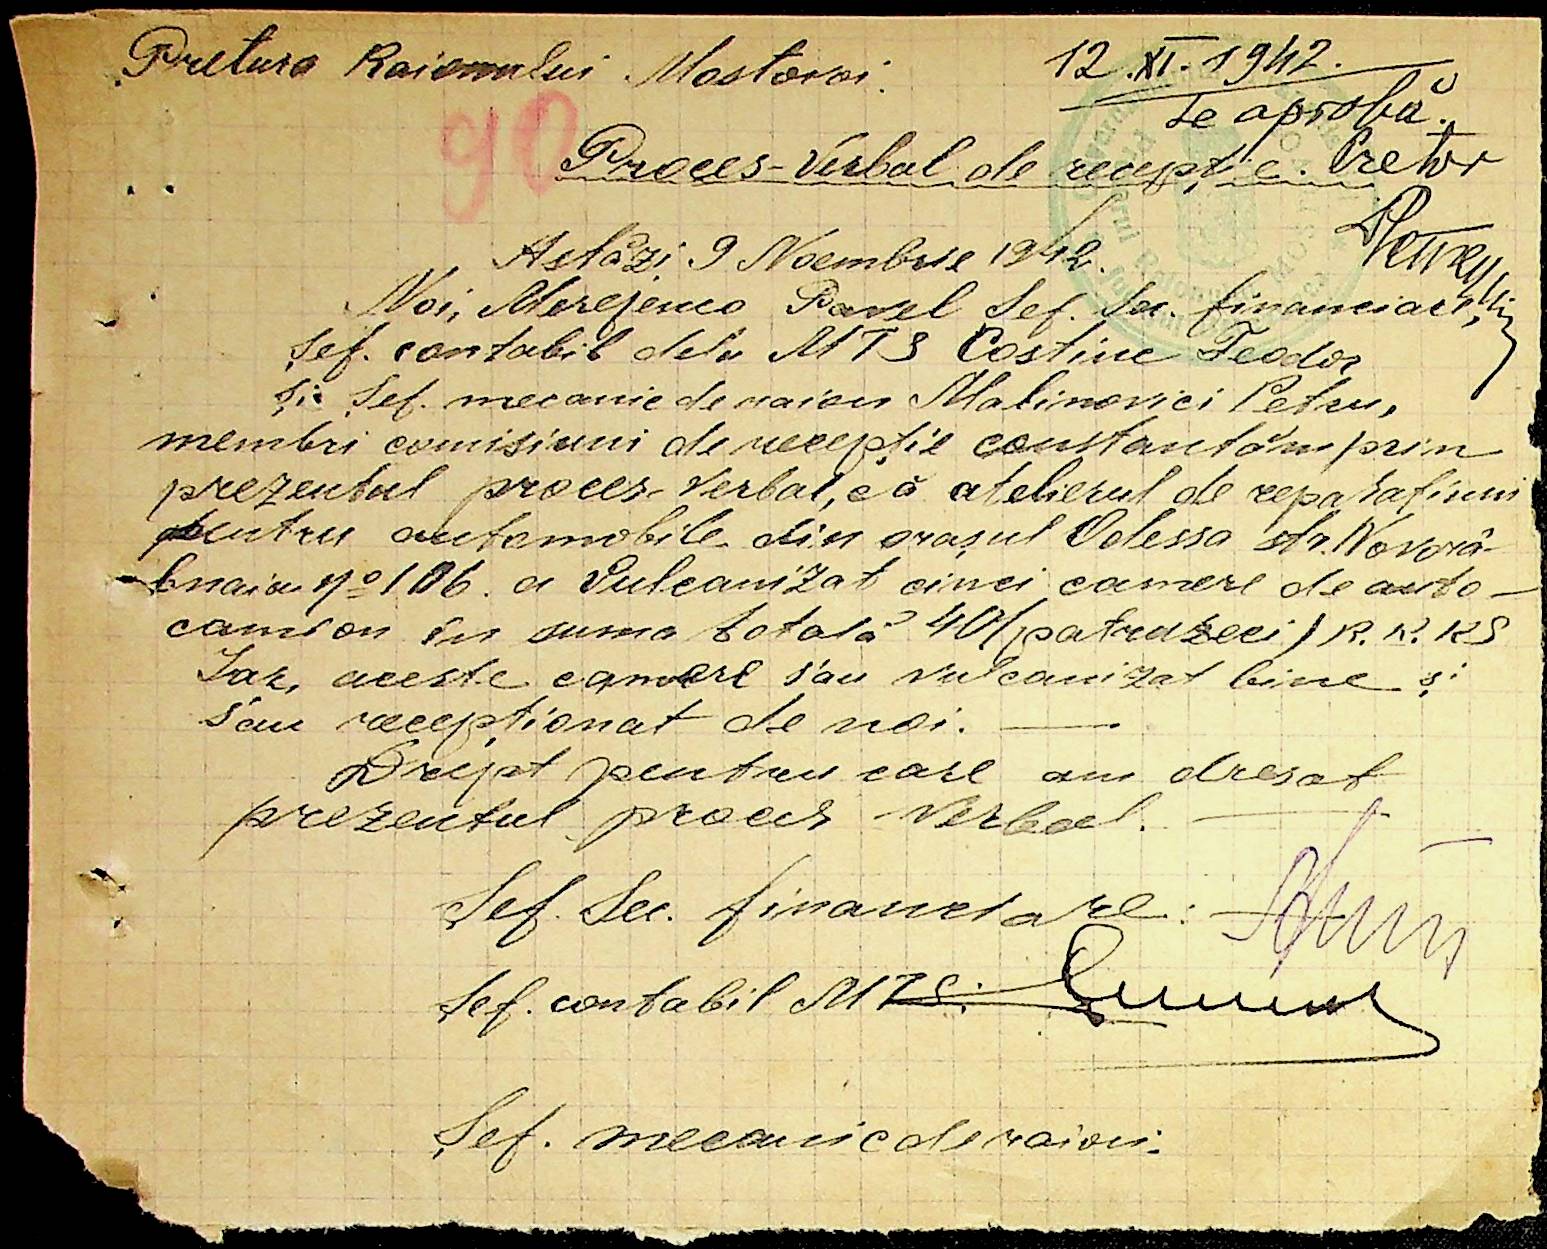 Pretura Raionului Mostovoi.
12.XI.1942.
Se aprobă.
Pretor
90
Proces-Verbal de recepție.
Astăzi 9 Noembrie 1942.
Noi, Merejenco Pavel Șef. Sec. financiare,
Șef. contabil dela MTS Costiuc Feodor
și Șef. mecanic de raion Malinovici Petru,
membri comisiuni de recepție constantăm prin
prezentul proces-Verbal, că atelierul de reparațiuni
pentru automobile din orașul Odessa str. Novorâ-
bnaia No 106. a Vulcanizat cinci camere de auto-
camion în suma totală 40 (patruzeci) R.K.KS
Iar, aceste camere s'au vulcanizat bine și
s'au recepționat de noi.
Drept pentru care am dresat
prezentul proces Verbal.
Șef. Sec. financiare:
Șef. contabil MTS:
Șef. mecanic de raion: